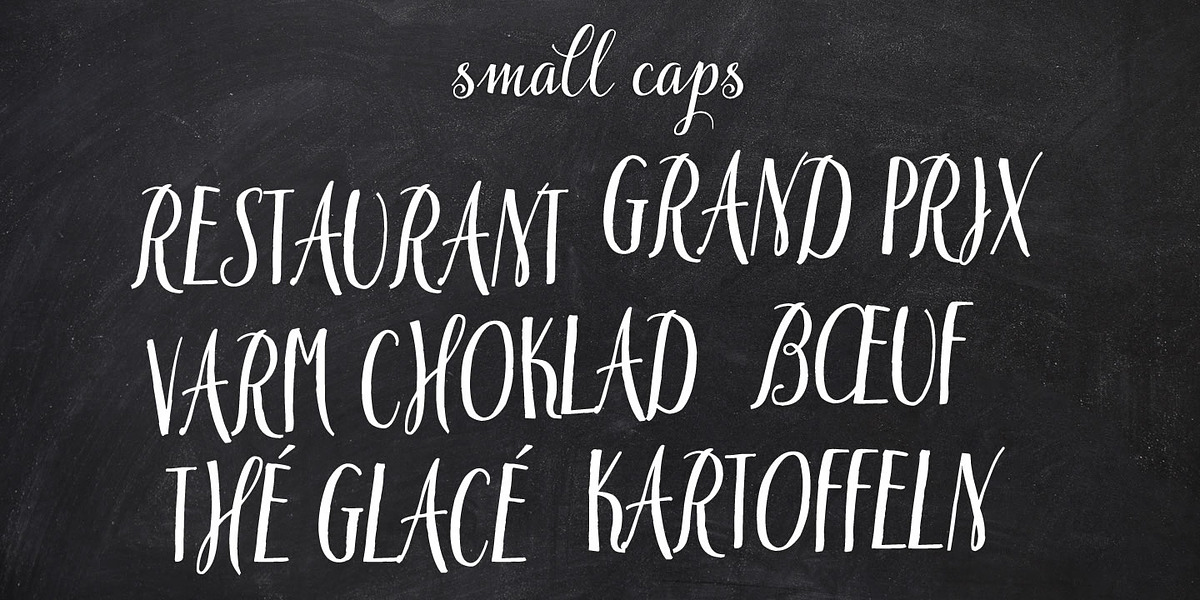 small caps
RESTAURANT GRAND PRIX
VARM CHOKLAD BŒUF
THÉ GLACÉ KARTOFFELN